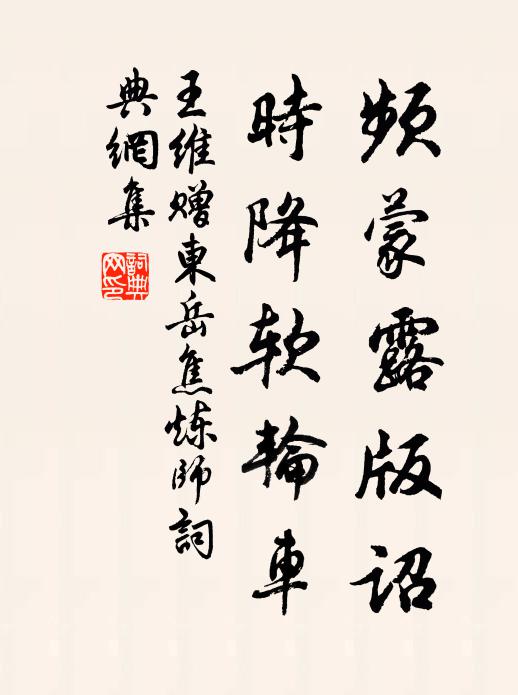 頻蒙露版詔
時降軟輪車
王維贈東岳焦炼師詞
典網集
詞典网印